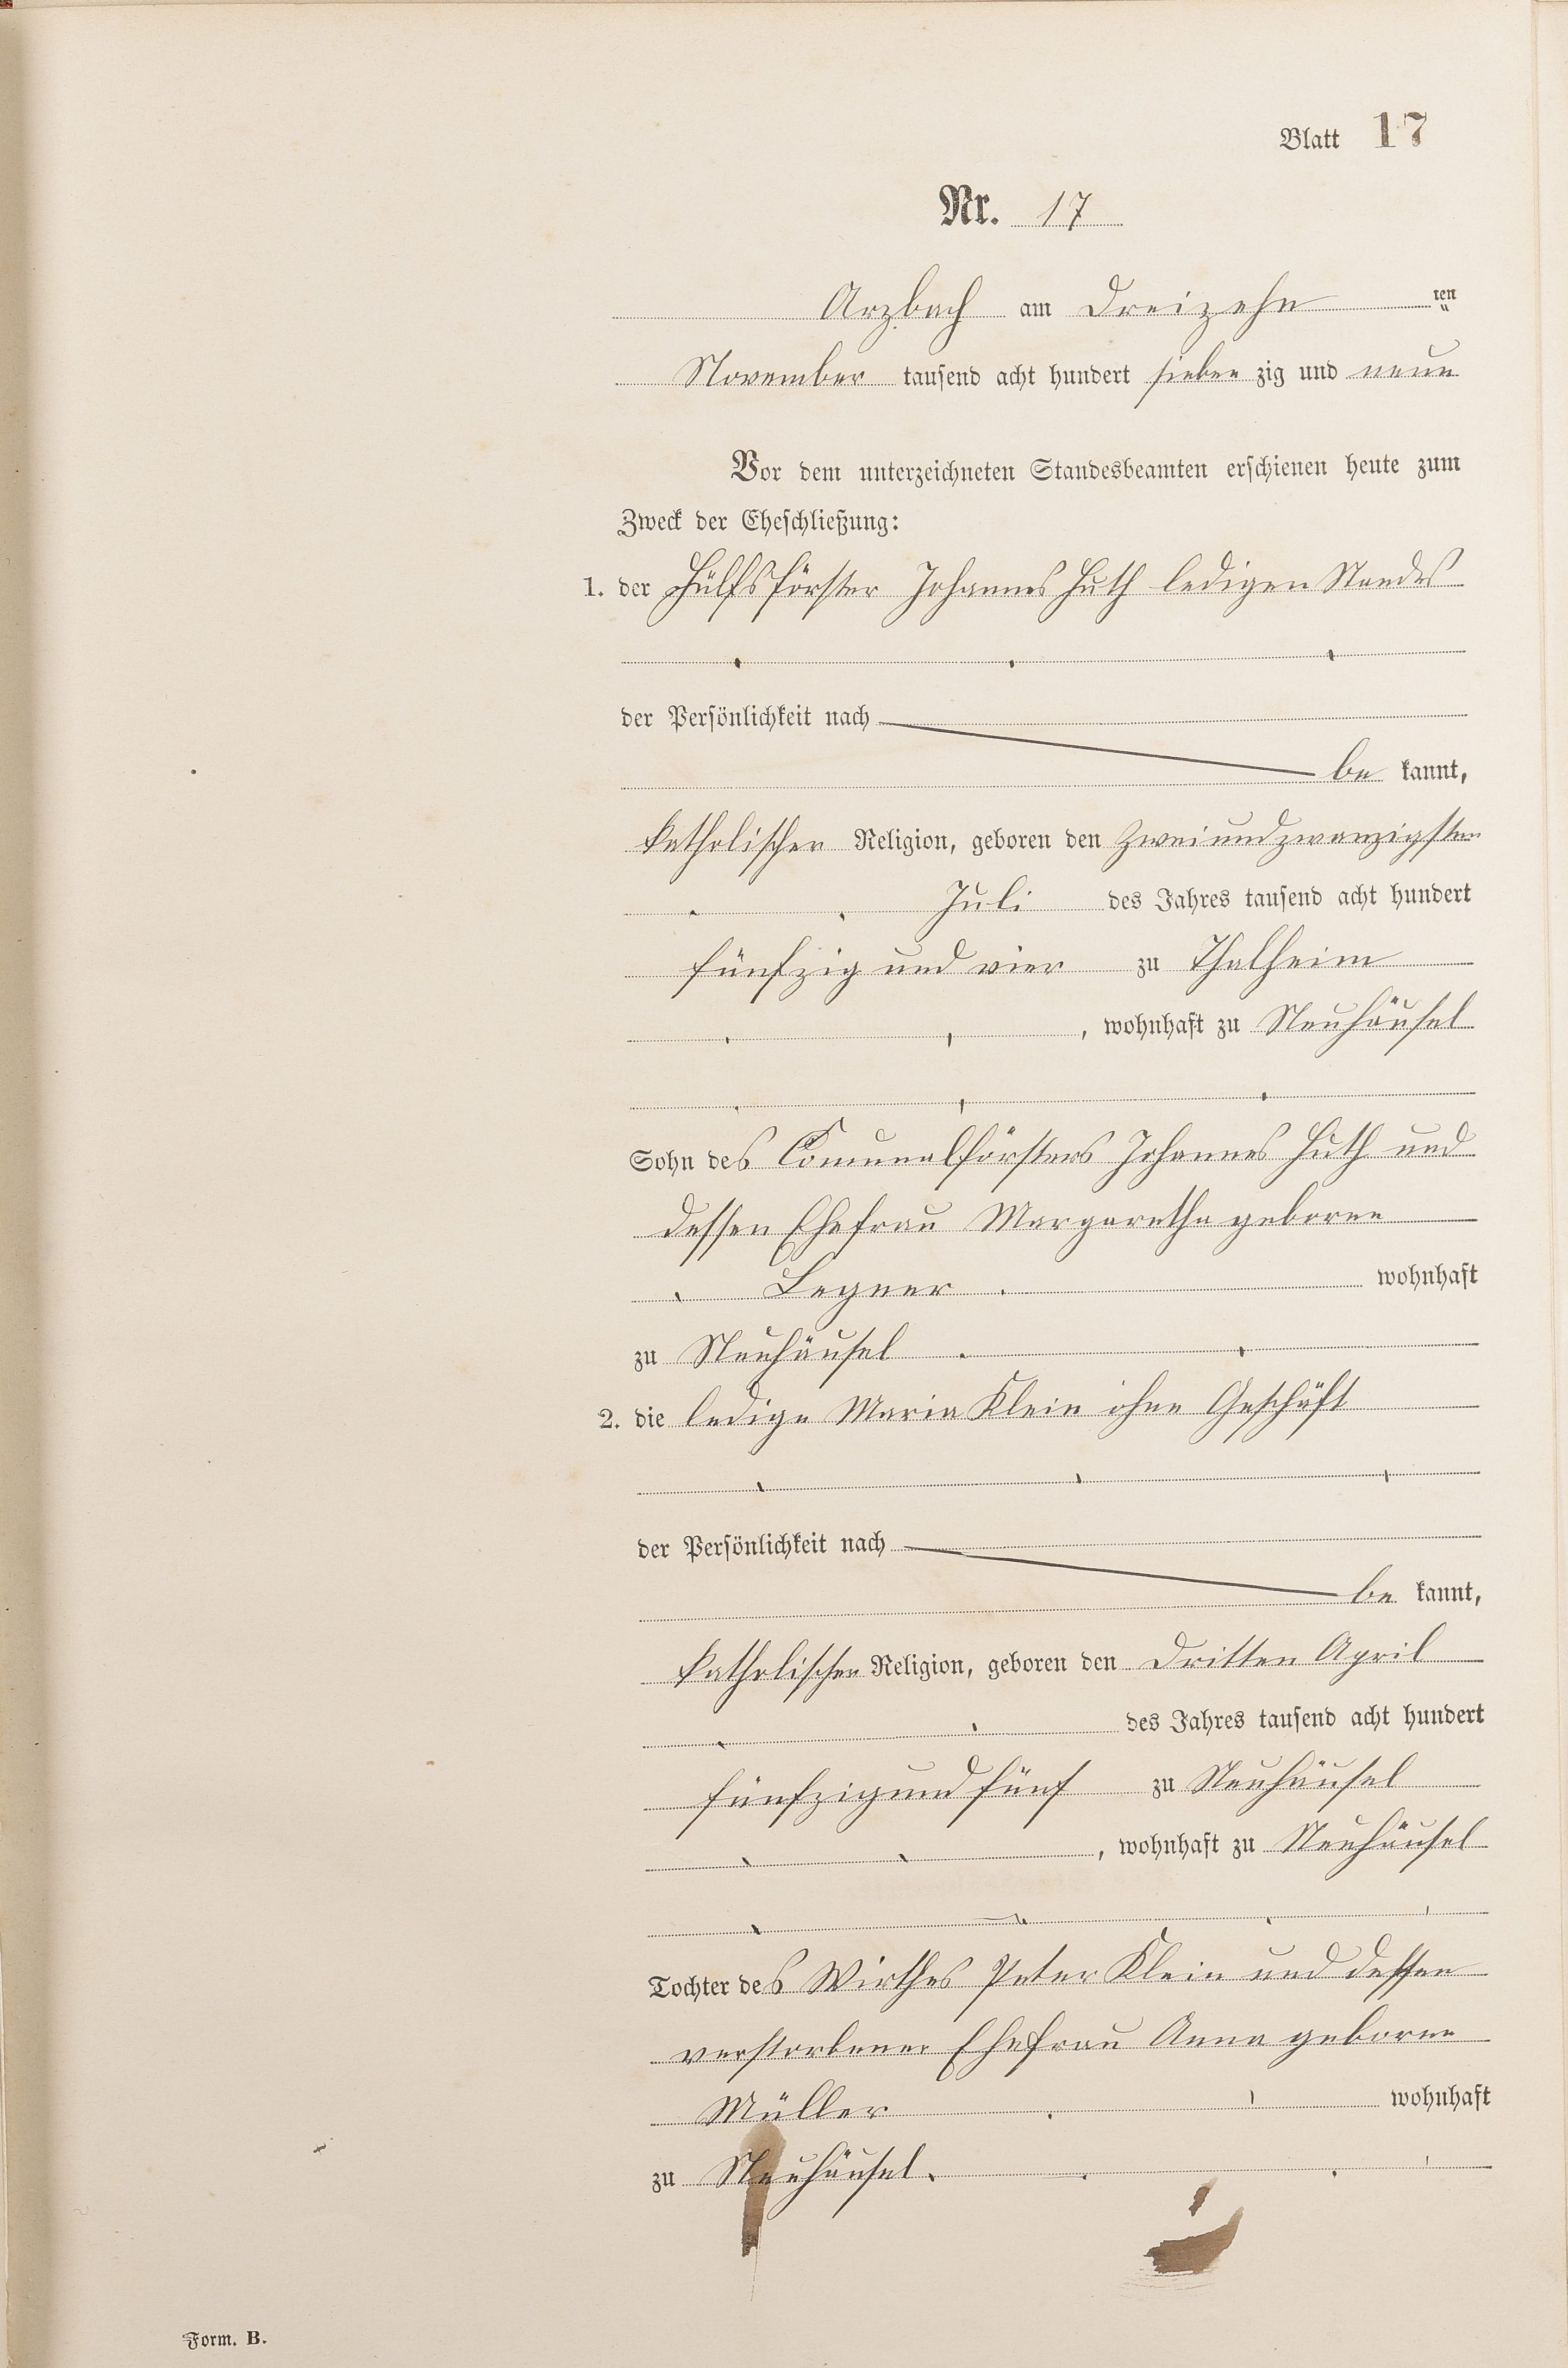 Blatt 17
Nr. 17
Arzbach am Dreizehn ten
November tausend acht hundert sieben zig und neun
Vor dem unterzeichneten Standesbeamten erschienen heute zum
Zweck der Eheschließung:
1. der Hülfsförster Johannes Huth ledigen Standes
der Persönlichkeit nach
be kannt,
katholischer Religion, geboren den Zweiundzwanzigsten
Juli des Jahres tausend acht hundert
fünfzig und vier zu Thalheim
, wohnhaft zu Neuhäusel
Sohn des Comunalförsters Johannes Huth und
dessen Ehefrau Margaretha geborne
Legner wohnhaft
zu Neuhäusel
2. die ledige Maria Klein ohne Geschäft
der Persönlichkeit nach
be kannt,
katholischer Religion, geboren den Dritten April
des Jahres tausend acht hundert
fünfzig und fünf zu Neuhäusel
, wohnhaft zu Neuhäusel
Tochter des Wirthes Peter Klein und dessen
verstorbener Ehefrau Anna geborne
Müller wohnhaft
zu Neuhäusel.
Form. B.